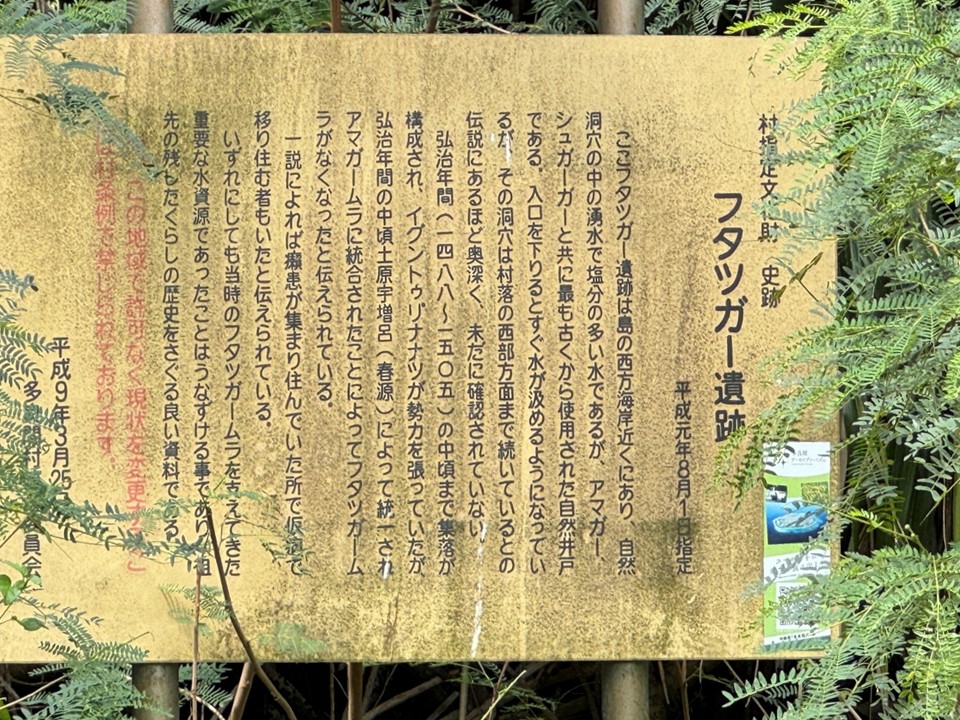 村指定文 財 史跡
フタツガー遺跡
平成元年8月1日指定
ここフタツガー遺跡は島の西方海岸近くにあり、自然
洞穴の中の湧水で塩分の多い水であるが、アマガー、
シュガーガーと共に最も古くから使用された自然井戸
である。入口を下りるとすぐ水が汲めるようになってい
るが、その洞穴は村落の西部方面まで続いているとの
伝説にあるほど奥深く、未だに確認されていない。
弘治年間(一四八八〜一五〇五)の中頃まで集落が
構成され、イグントゥリナナツが勢力を張っていたが
弘治年間の中頃土原宇増呂(春源)によって統一され
アマガームラに統合されたことによってフタツガーム
ラがなくなったと伝えられている。
一説によれば癩患が集まり住んでいた所で仮病で
移り住む者もいたと伝えられている。
いずれにしても当時のフタツガームラを支えてきた
重要な水資源であったことはうなずける事であり、祖
先の残したくらしの歴史をさぐる良い資料である。
この地域で許可なく現状を変更すること
は村条例で禁じられております。
平成9年3月25
多 間村 員会